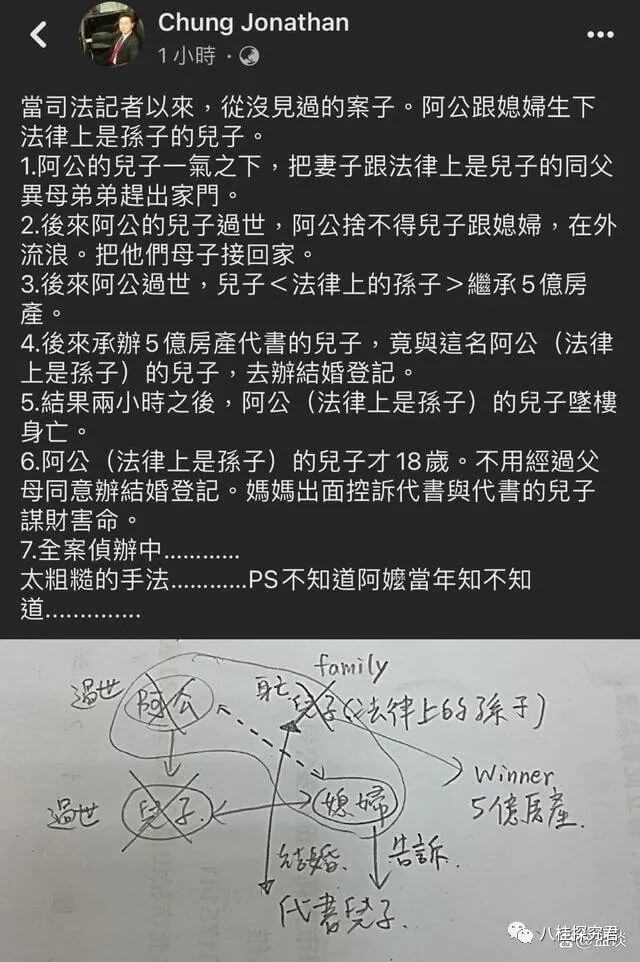 Chung Jonathan
1 小時
當司法記者以來，從沒見過的案子。阿公跟媳婦生下
法律上是孫子的兒子。
1.阿公的兒子一氣之下，把妻子跟法律上是兒子的同父
異母弟弟趕出家門。
2.後來阿公的兒子過世，阿公捨不得兒子跟媳婦，在外
流浪。把他們母子接回家。
3.後來阿公過世，兒子＜法律上的孫子＞繼承5億房
產。
4.後來承辦5億房產代書的兒子，竟與這名阿公（法律
上是孫子）的兒子，去辦結婚登記。
5.結果兩小時之後，阿公（法律上是孫子）的兒子墜樓
身亡。
6.阿公（法律上是孫子）的兒子才18歲。不用經過父
母同意辦結婚登記。媽媽出面控訴代書與代書的兒子
謀財害命。
7.全案偵辦中…………
太粗糙的手法…………PS不知道阿嬤當年知不知
道…………..
family
過世 阿公 身亡 兒子(法律上的孫子)
Winner
過世 兒子 媳婦 5億房產.
結婚. 告訴.
代書兒子.
八桂探究君